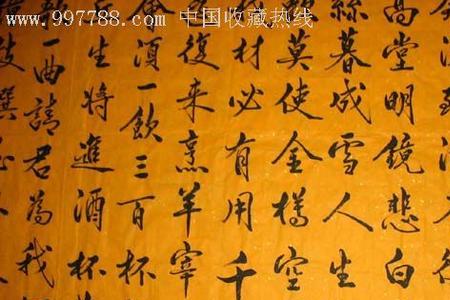 www.997788.com 中国收藏热线
到海不
高堂明鏡悲白
絲暮成雪人生
莫使金樽空
材必有用千
復来烹羊宰
會須一飲三百杯
生將進酒杯
一曲請君為我
鼓饌